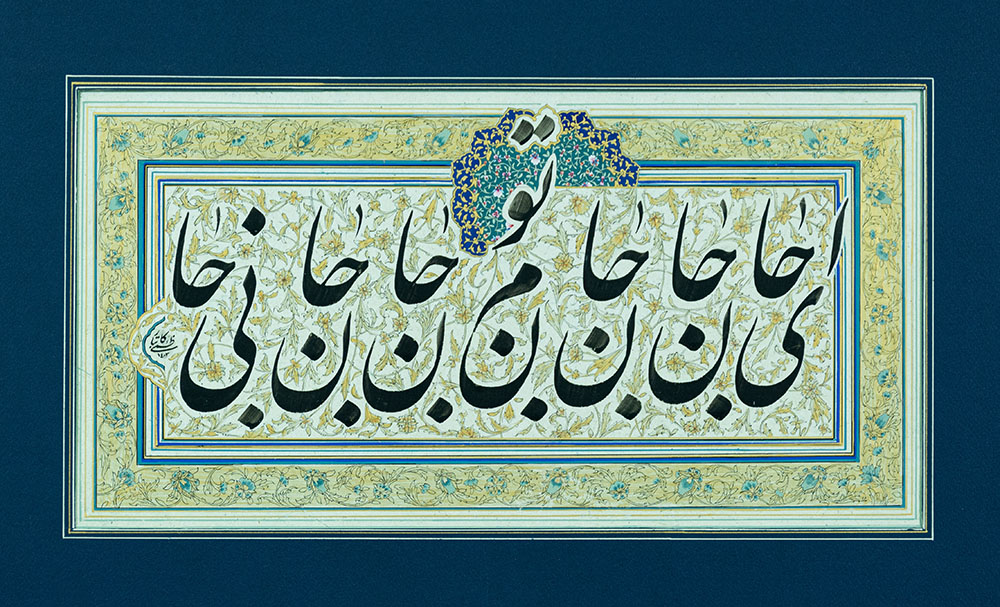 ای جان جان جانم تو جان جان جانی